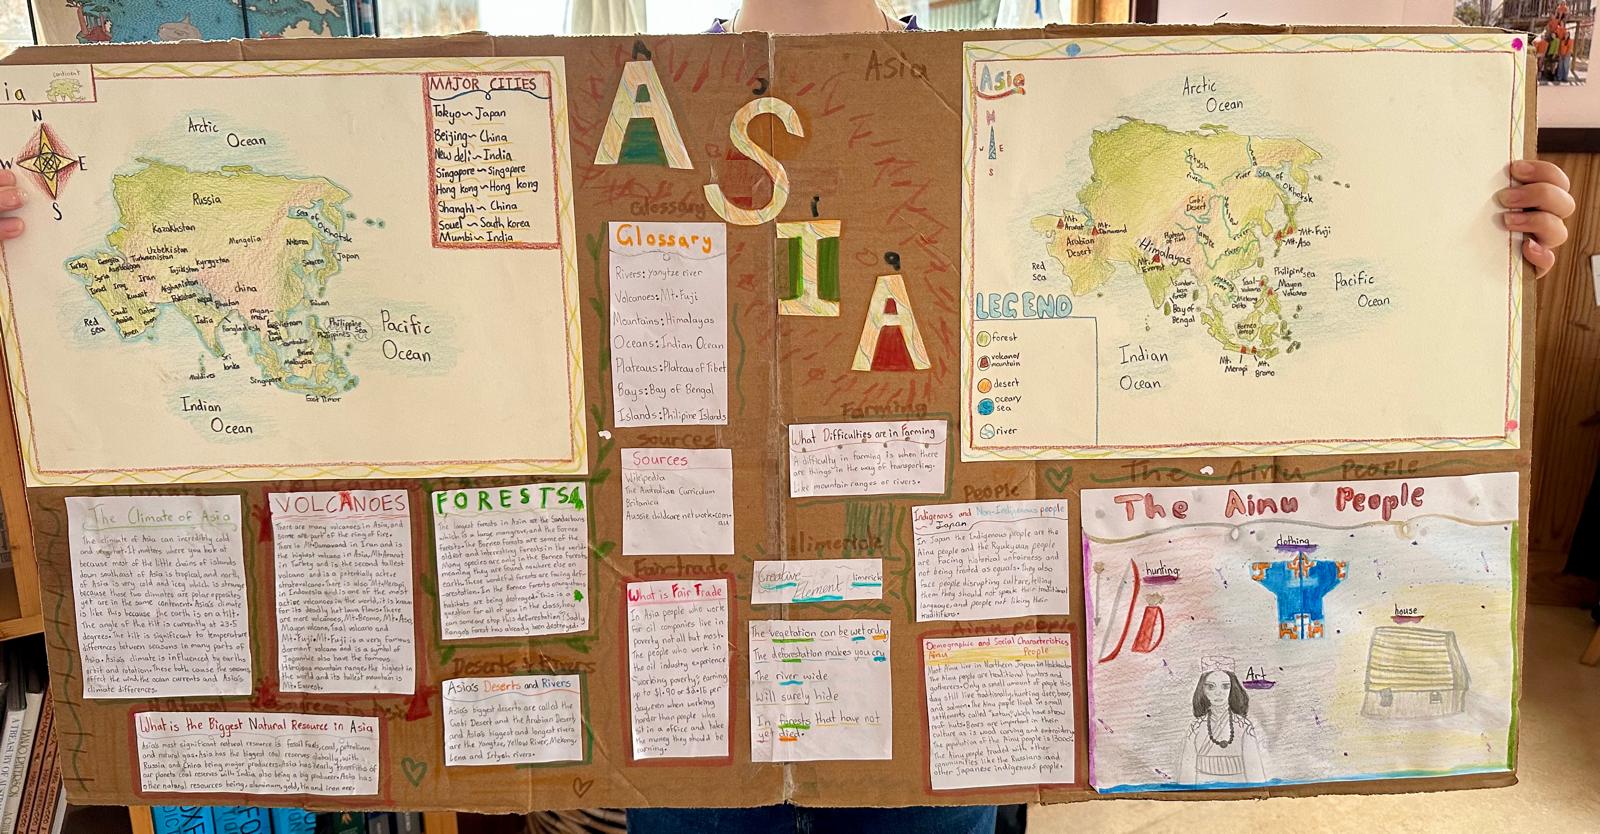 ia
continent
N
W
E
S
Arctic
Ocean
Russia
Kazakhstan
Mongolia
Uzbekistan
Turkmenistan
Kyrgyzstan
Tajikistan
Turkey
Georgia
Syria
Iraq
Iran
Afghanistan
Kuwait
Pakistan
Nepal
Bhutan
China
Saudi
Arabia
Qatar
Yemen
India
Bangladesh
Sea of
Okhotsk
Japan
Taiwan
Vietnam
Philippine
Sea
Philippines
Malaysia
Brunei
Sri
lanka
Maldives
Singapore
East Timor
Red
Sea
Pacific
Ocean
Indian
Ocean
MAJOR CITIES
Tokyo~Japan
Beijing~China
New deli~India
Singapore~Singapore
Hong kong~Hong kong
Shanghi~China
Souel~South korea
Mumbi~India
ASIA
Asia
Glossary
Glossary
Rivers: Yangtze river
Volcanoes: Mt.Fuji
Mountains: Himalayas
Oceans: Indian Ocean
Plateaus: Plateau of Tibet
Bays: Bay of Bengal
Islands: Philipine Islands
Sources
Sources
Wikipedia
The Australian Curriculum
Britanica
Aussie childcare network.com.
au
Farming
What Difficulties are in Farming
A difficulty in farming is when there
are things in the way of transporting.
Like mountain ranges or rivers.
Asia
N
W
E
S
Arctic
Ocean
Irtysh
river
Lena
river
Sea of
Okhotsk
Gobi
Desert
Mt.
Ararat
Mt.
Damavand
Arabian
Desert
Himalayas
Mt.
Everest
Mt-Fuji
Mt-Aso
Red
sea
Bay of
Bengal
Philipine sea
Mayon
Volcano
Taal
Volcano
Borneo
Forest
Mt.
Merapi
Mt.
Bromo
Pacific
Ocean
Indian
Ocean
LEGEND
forest
volcano/
mountain
desert
ocean/
sea
river
The Climate of Asia
The climate of Asia can incredibly cold
and very hot. It matters where you look at
because most of the little chains of islands
down southeast of Asia is tropical, and north
of Asia is very cold and icey, which is strange
because those two climates are polar opposites
yet are in the same continent. Asia's climate
is like this because the earth is on a tilt.
The angle of the tilt is currently at 23.5
degrees. The tilt is significant to temperature
differences between seasons in many parts of
Asia. Asia's climate is influenced by earths
tilt and rotation. These both cause the seasons,
affect the wind, the ocean currents and Asia's
climate differences.
VOLCANOES
There are many volcanoes in Asia, and
some are part of the ring of fire.
There is Mt.Damavand in Iran and is
the highest volcano in Asia, Mt.Ararat
in Turkey and is the second tallest
volcano and is a potentially active
stratovolcano. There is also Mt.Merapi
in Indonesia and is one of the most
active volcanoes in the world, it is known
for its deadly hot lava flows. There
are more volcanoes, Mt.Bromo, Mt.Aso,
Mayon volcano, Taal volcano and
Mt.Fuji. Mt.Fuji is a very famous
dormant volcano and is a symbol of
Japan. We also have the famous
Himalayas mountain range, the highest in
the world and its tallest mountain is
Mt.Everest.
FORESTS
The largest forests in Asia are the Sundarbans
which is a large mangrove, and the Borneo
forests. The Borneo forests are some of the
oldest and interesting forests in the world.
Many species are only in the Borneo forests,
meaning they are found nowhere else on
earth. These wonderful forests are facing def-
orestation. In the Borneo forests orangutans
habitats are being destroyed. This is a
question for all of you in the class, how
can someone stop this deforestation? Sadly
forest has already been destroyed.
What is the Biggest Natural Resource in Asia
Asia's most significant natural resource is fossil fuels, coal, petrolium
and natural gas. Asia has the biggest coal reserves globally, with
Russia and China being major producers. Asia has nearly three fifths of
our planets coal reserves with India also being a big producers. Asia has
other natural resources being, aluminum, gold, tin and iron ore.
Deserts
Asia's Deserts and Rivers
Asia's biggest deserts are called the
Gobi Desert and the Arabian Desert
and Asia's biggest and longest rivers
are the Yangtze, Yellow River, Mekong,
Lena and Irtysh rivers.
Fairtrade
What is Fair Trade
In Asia people who work
for oil companies live in
poverty not all but most.
The people who work in
the oil industry experience
"working poverty", earning
up to $1.90 or $3.10 per
day, even when working
harder than people who
sit in a office and take
the money they should be
earning.
limerick
Creative
Element limerick
The vegetation can be wet or dry
The deforestation makes you cry
The river wide
Will surely hide
In forests that have not
yet died.
People
Indigenous and Non-Indigenous people
Japan
In Japan the Indigenous people are the
Ainu people and the Ryukyuan people
are facing historical unfairness and
not being treated as equals. They also
face people disrupting culture, telling
them they should not speak their traditional
language, and people not liking their
traditions.
Ainu people
Demographic and Social Characteristics
Ainu People
Most Ainu live in Northern Japan in Hokkaido.
The Ainu people are traditional hunters and
gatherers. Only a small amount of people this
day still live traditionally, hunting deer, bear,
and salmon. The Ainu people lived in small
settlements called "kotan", which have straw
roof huts. Bears are important in their
culture as is wood carving and embroidery.
The population of the Ainu people is 13000.
The Ainu people traded with other
communities like the Russians and
other Japanese indigenous people.
The Ainu People
The Ainu People
hunting
clothing
house
Art